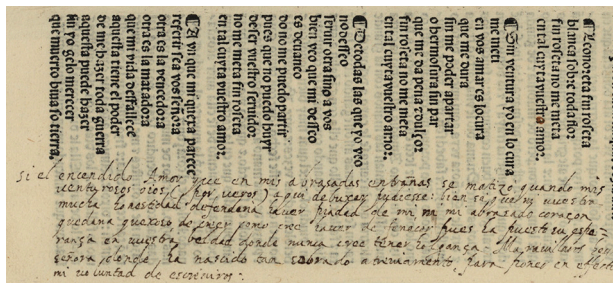 ¶Leonoreta fin roseta
blanca sobre toda flor
fin roseta no me meta
en tal cuyta vuestro amor.
¶Sin ventura yo en locura
me meti
en vos amar es locura
que me dura
sin me poder apartar
o hermosura sin par
que me da pena ⁊ dulçor
fin roseta no me meta
en tal cuyta vuestro amor.
¶De todas las que yo veo
no desseo
seruir otra sino a vos
bien veo que mi desseo
es deuaneo
do no me puedo partir
pues que no puedo huyr
de ser vuestro seruidor
no me meta fin roseta
en tal cuyta vuestro amor.
¶Aun que mi quexa parece
referir se a vos señora
otra es la vencedora
otra es la matadora
que mi vida desfallece
aquesta tiene el poder
de me hazer toda guerra
aquesta puede hazer
sin yo gelo merecer
que muerto biua so tierra.
si el encendido Amor que en mis abrasadas entrañas se matizo quando mis
venturosos ojos, aqui debuxar pudiesse: bien se que vuestra
mucha honestidad piadad de mi mi abrasado coraçon
quexoso de cree pues ha puesto su espe
rança en vuestra beldad donde nunca cree tener holgança
señora, donde ha nascido tan sobrado atreuimiento, para poner en effecto
mi voluntad de escreuiros.